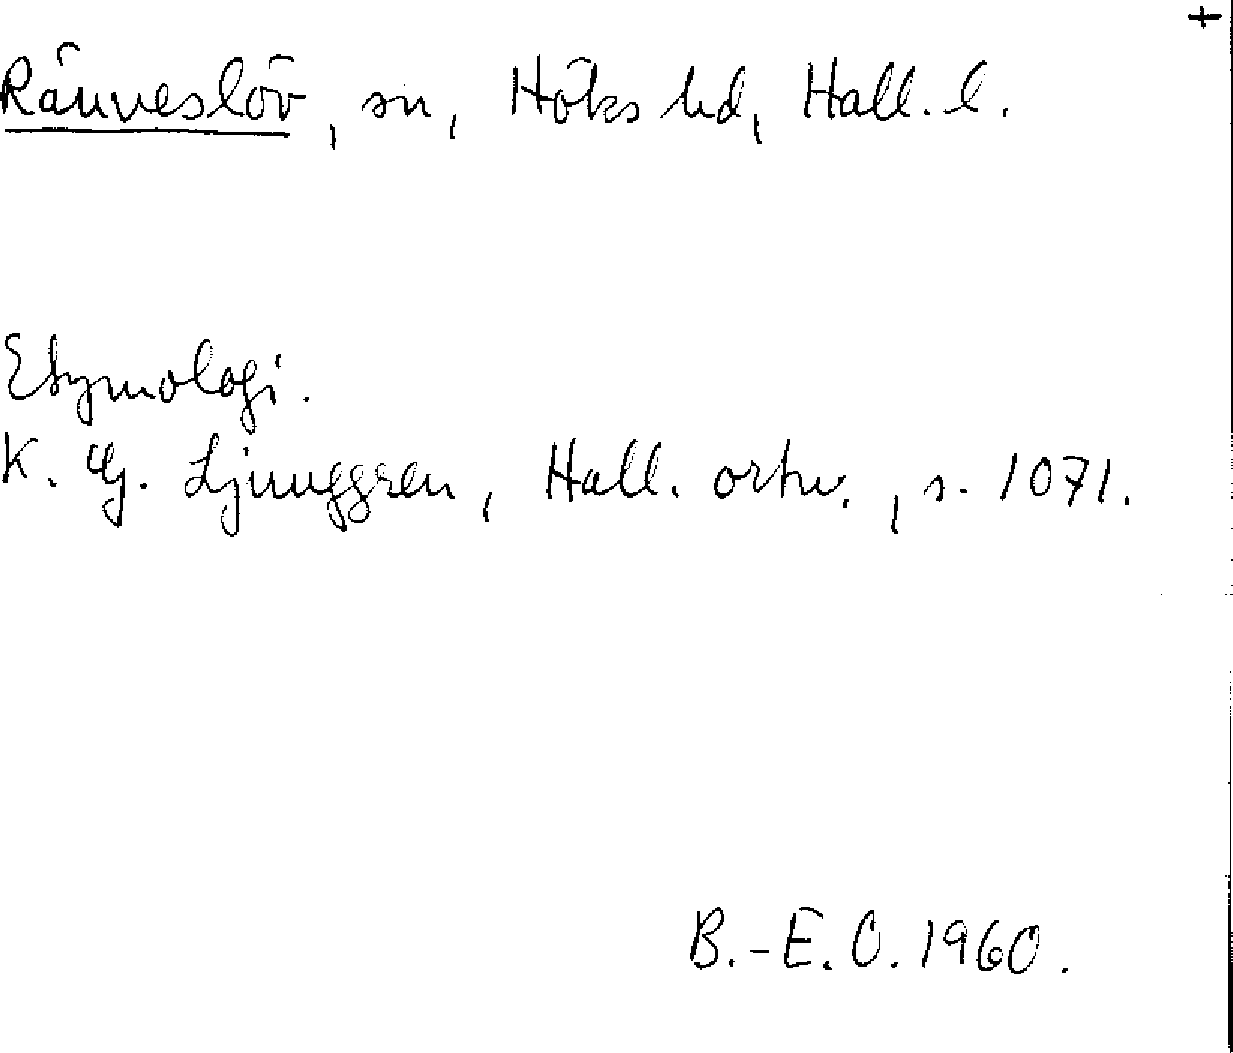 +
Ränneslöv, sn, Höks hd, Hall. l.
Etymologi.
K. G. Ljunggren, Hall. ortn., s. 1071.
B.-E. O. 1960.